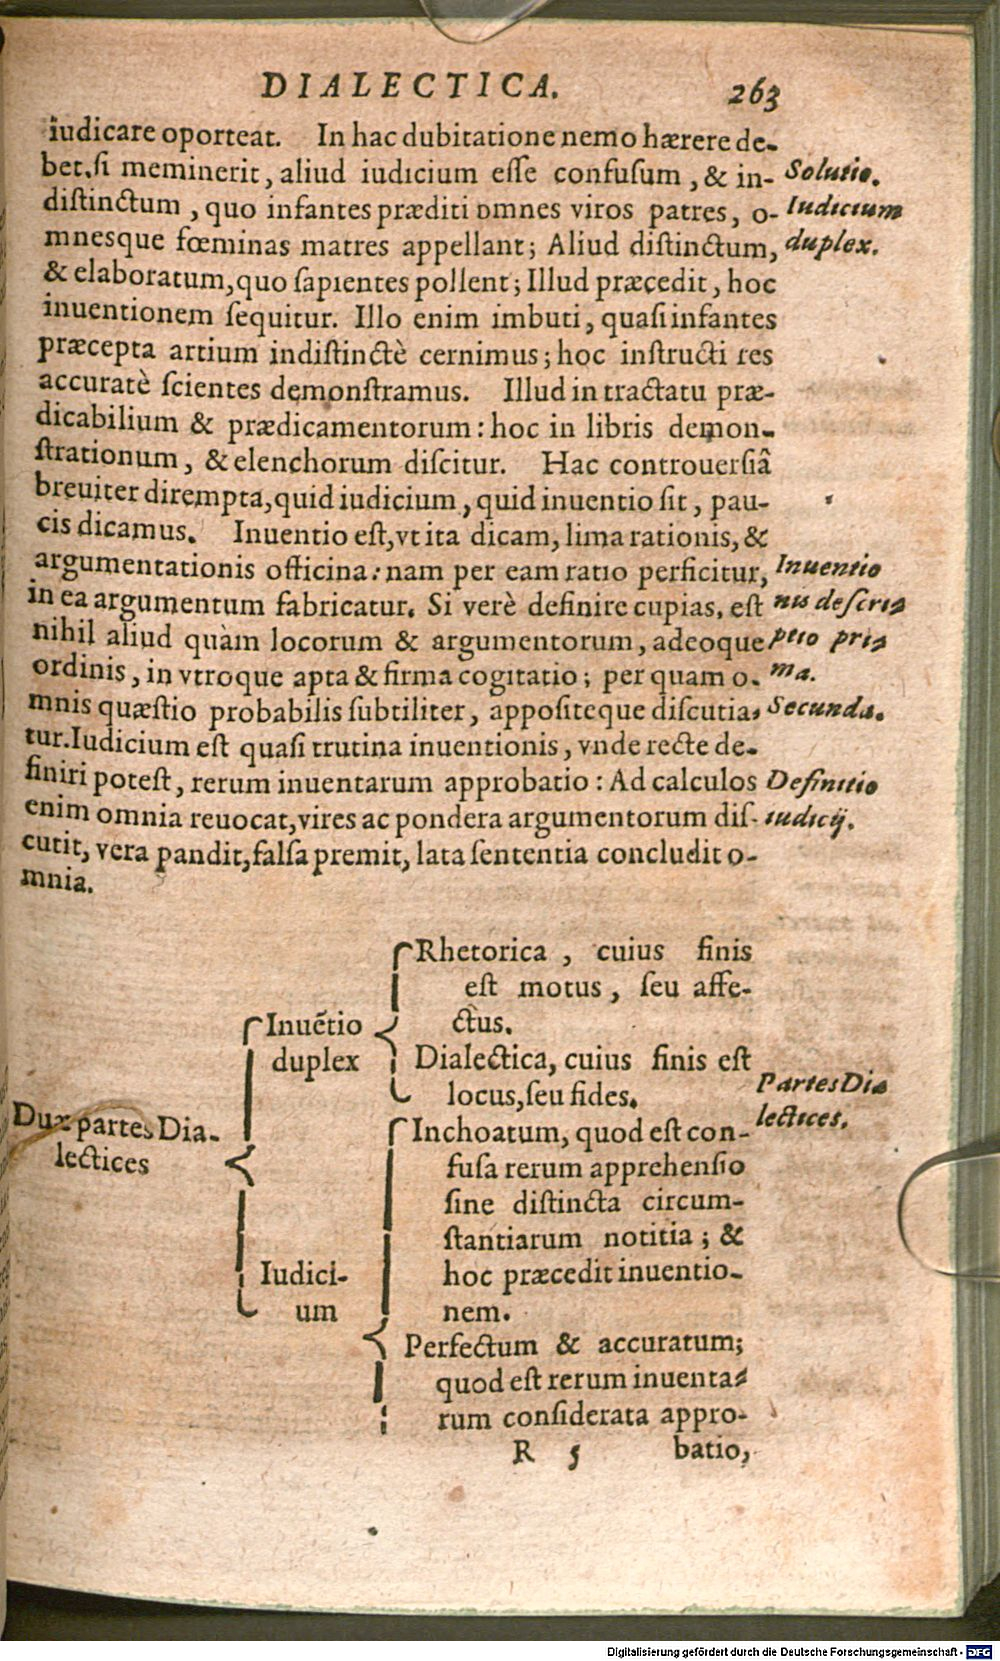 DIALECTICA. 263
iudicare oporteat. In hac dubitatione nemo hærere de-
bet, si meminerit, aliud iudicium esse confusum, & in-
Solutio.
distinctum, quo infantes præditi omnes viros patres, o-
Iudicium
mnesque fœminas matres appellant; Aliud distinctum,
duplex.
& elaboratum, quo sapientes pollent; Illud præcedit, hoc
inuentionem sequitur. Illo enim imbuti, quasi infantes
præcepta artium indistinctè cernimus; hoc instructi res
accuratè scientes demonstramus. Illud in tractatu præ-
dicabilium & prædicamentorum: hoc in libris demon-
strationum, & elenchorum discitur. Hac controuersiâ
breuiter dirempta, quid iudicium, quid inuentio sit, pau-
cis dicamus. Inuentio est, vt ita dicam, lima rationis, &
argumentationis officina: nam per eam ratio perficitur,
Inuentio
in ea argumentum fabricatur. Si verè definire cupias, est
nis descri-
nihil aliud quàm locorum & argumentorum, adeoque
ptio pri-
ordinis, in vtroque apta & firma cogitatio; per quam o-
ma.
mnis quæstio probabilis subtiliter, appositeque discutia-
Secunda.
tur. Iudicium est quasi trutina inuentionis, vnde recte de-
finiri potest, rerum inuentarum approbatio: Ad calculos
Definitio
enim omnia reuocat, vires ac pondera argumentorum dis-
iudicij.
cutit, vera pandit, falsa premit, lata sententia concludit o-
mnia.
Duæ partes Dia-
lectices
Inuẽtio
duplex
Rhetorica, cuius finis
est motus, seu affe-
ctus.
Dialectica, cuius finis est
locus, seu fides.
Partes Dia
lectices.
Iudici-
um
Inchoatum, quod est con-
fusa rerum apprehensio
sine distincta circum-
stantiarum notitia; &
hoc præcedit inuentio-
nem.
Perfectum & accuratum;
quod est rerum inuenta-
rum considerata appro-
R 5 batio,
Digitalisierung gefördert durch die Deutsche Forschungsgemeinschaft - DFG